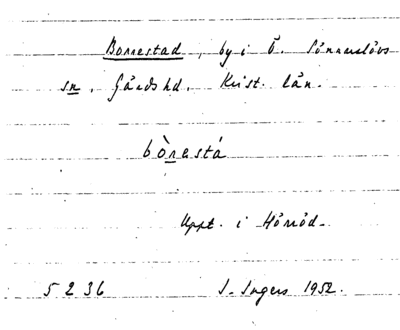 Borrestad, by i Ö. Sönnarslövs
sn, Gärds hd, Krist. län.
bòrestá
Uppt. i Hörröd.
5 2 36 I. Ingers 1952.